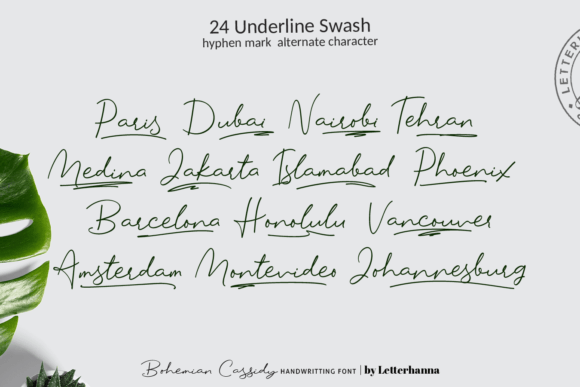 24 Underline Swash
hyphen mark alternate character
LETTERH
Paris Dubai Nairobi Tehran
Medina Jakarta Islamabad Phoenix
Barcelona Honolulu Vancouver
Amsterdam Montevideo Johannesburg
Bohemian Cassidy HANDWRITTING FONT | by Letterhanna